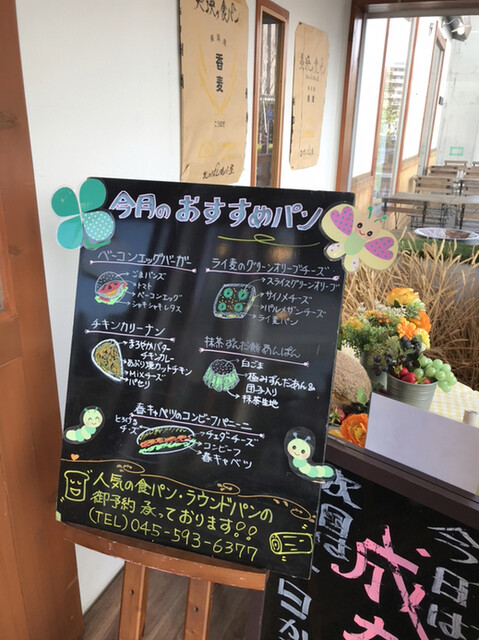 香麦
今月のおすすめパン
ベーコンエッグバーガー
ごまバンズ
トマト
ベーコンエッグ
シャキシャキレタス
ライ麦のグリーンオリーブチーズ
スライスグリーンオリーブ
サイノメチーズ
パルメザンチーズ
ライ麦パン
チキンカリーナン
まろやかバター
チキンカレー
あぶり焼カットチキン
Mixチーズ
パセリ
抹茶ずんだ餅あんぱん
白ごま
極みずんだあん&
団子入り
抹茶生地
春キャベツのコンビーフパニーニ
とろける
チーズ
チェダーチーズ
コンビーフ
春キャベツ
人気の食パン・ラウンドパンの
御予約承っております!!
(TEL)045-593-6377
今日は